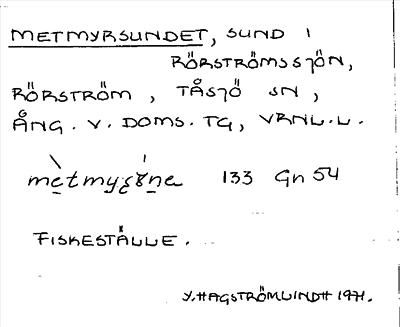 METMYRSUNDET, SUND I
RÖRSTRÖMSSJÖN,
RÖRSTRÖM, TÅSJÖ SN,
ÅNG. V. DOMS. TG, VRNL.L.
133 Gn 54
FISKESTÄLLE.
Y. HAGSTRÖMLINDH 1971.